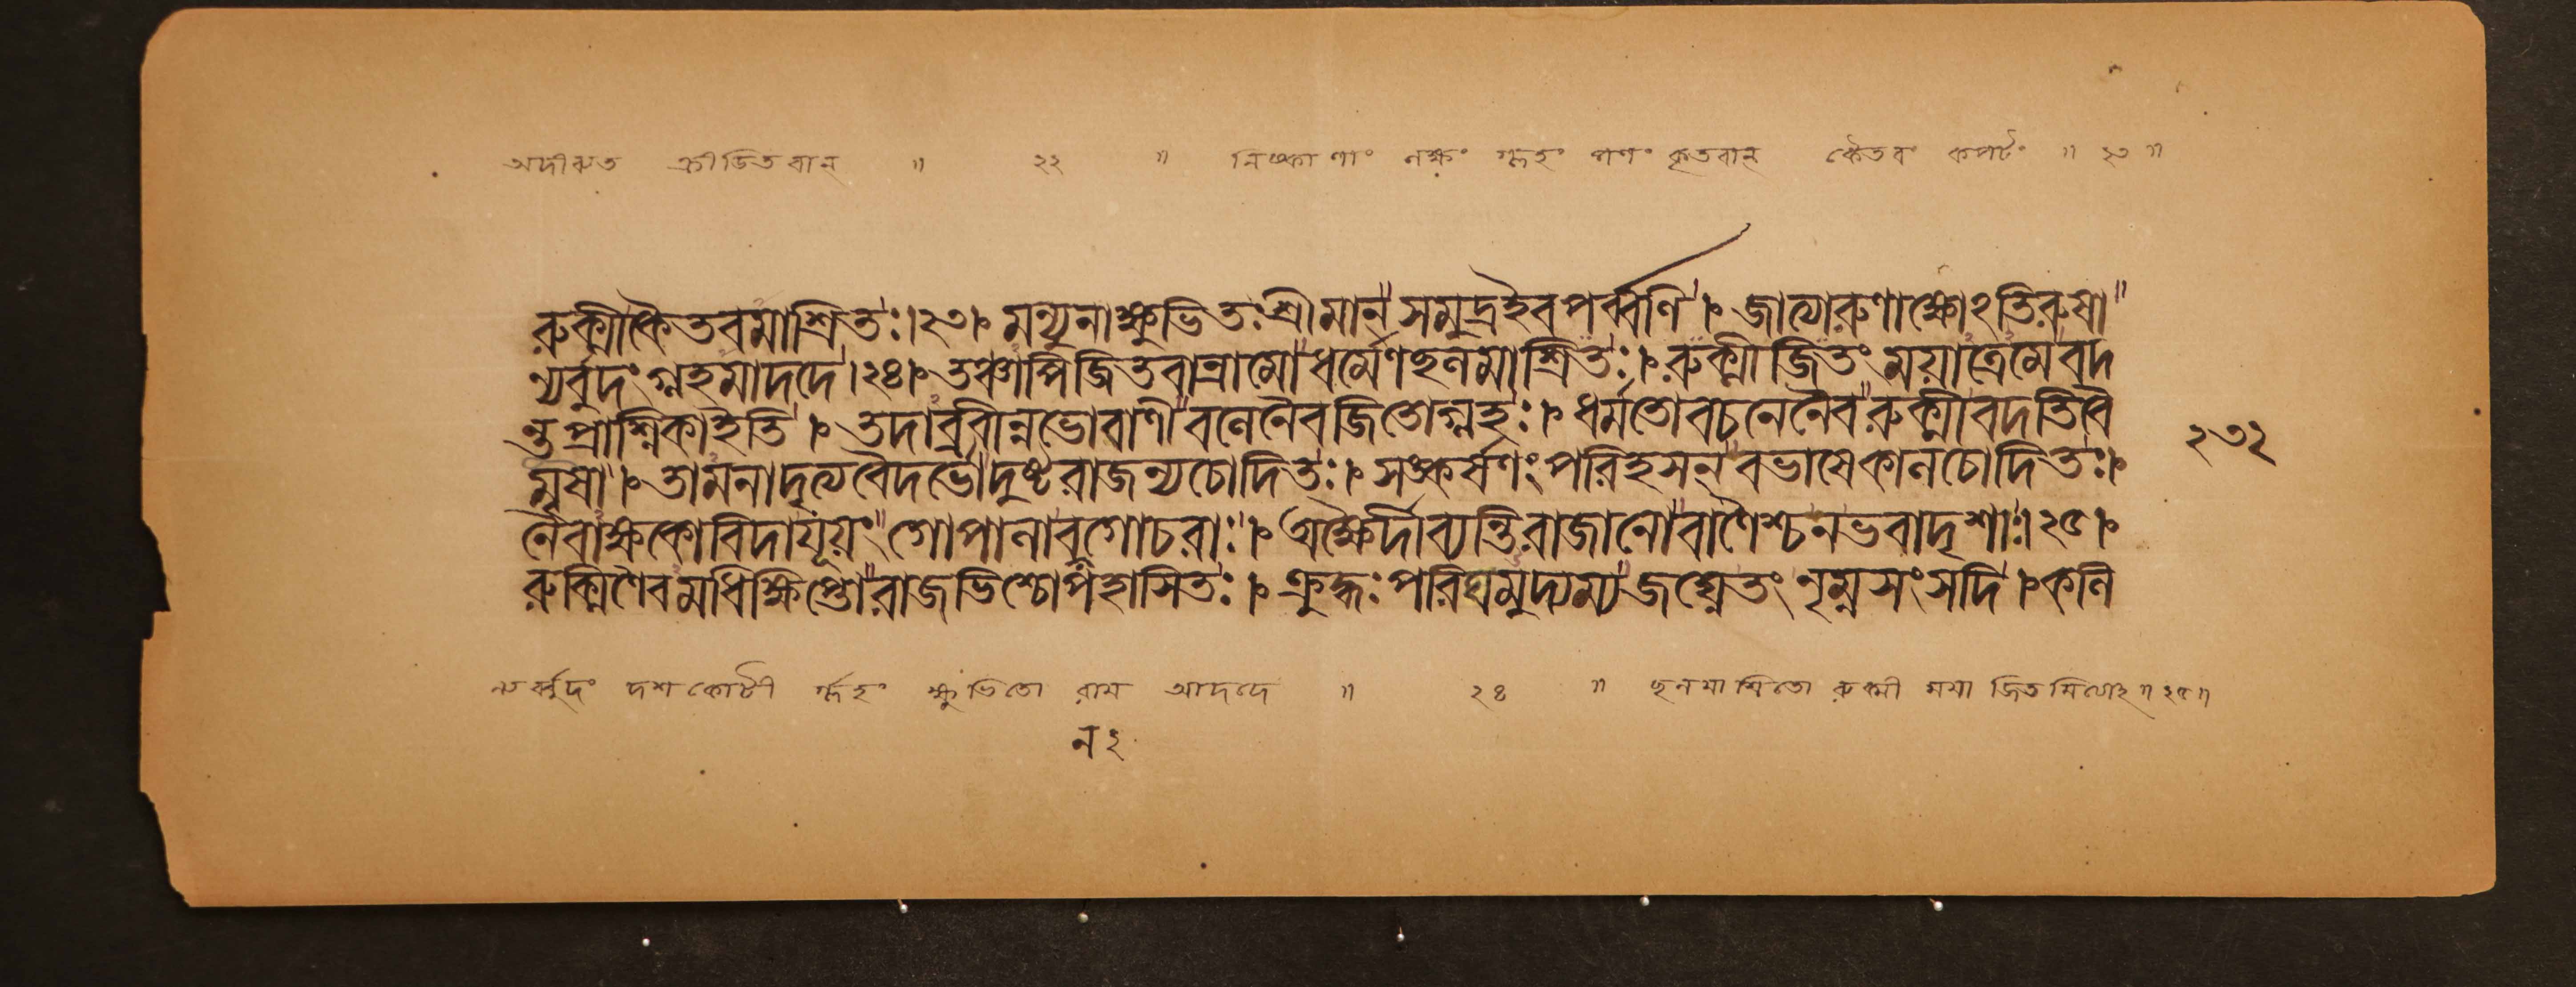 অদীব্যত ক্রীডিতবান্ ॥ ২২ ॥ নিষ্কাণাং লক্ষং গ্লহং পণং কৃতবান্ কৈতবং কপটং ॥ ২৩ ॥
রুক্মীকৈতবমাশ্রিতঃ।২৩। মন্যুনাক্ষুভিতঃশ্রীমান্ সমুদ্রইবপর্ব্বণি। জাত্যারুণাক্ষোঽতিরুষা
ন্যর্বুদংগ্লহমাদদে।২৪। তঞ্চাপিজিতবান্রামোধর্মেণছলমাশ্রিতঃ। রুক্মীজিতংময়াত্রেমেবদ
ন্তুপ্রাশ্নিকাইতি। তদাব্রবীন্নভোবাণীবলেনৈবজিতোগ্লহঃ। ধর্মতোবচনেনৈবরুক্মীবদতিবৈ
মৃষা। তামনাদৃত্যবৈদর্ভোদুষ্টরাজন্যচোদিতঃ। সঙ্কর্ষণংপরিহসন্ বভাষেকালচোদিতঃ।
নৈবাক্ষকোবিদাযূয়ংগোপালাবনগোচরাঃ। অক্ষৈর্দীব্যন্তিরাজানোবাণৈশ্চনভবাদৃশাঃ।২৫।
রুক্মিণৈবমধিক্ষিপ্তোরাজভিশ্চোপহাসিতঃ। ক্রুদ্ধঃপরিঘমুদ্যম্যজঘ্নেতংনৃম্নসংসদি।কলি
২৩২
ন্যর্ব্বুদং দশকোটী র্গ্লহং ক্ষুভিতো রাম আদদে ॥ ২৪ ॥ ছলমাশ্রিতো রুক্মী ময়া জিতমিত্যাহ ॥ ২৫ ॥
ন ২